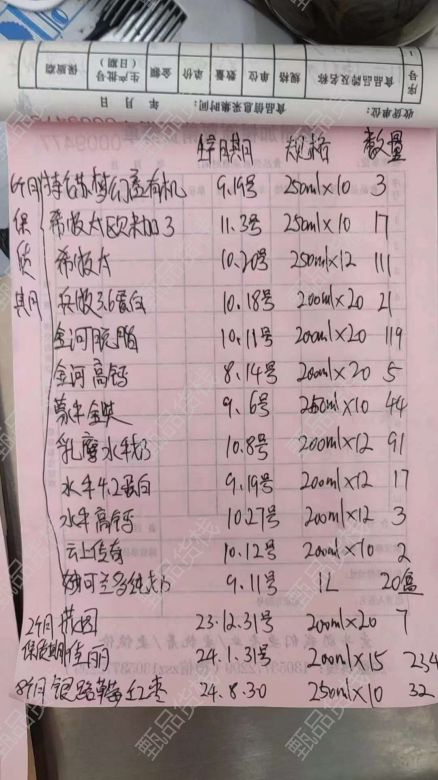 序号 食品品牌及名称 规格 单位 数量 单价 金额 生产批号(日期) 保质期
收货单位: 食品信息采集时间: 年 月 日
0009477
生产日期 规格 数量
6个月 特仑苏梦幻盖有机 9.19号 250ml×10 3
保 希 大欧米加3 11.3号 250ml×10 17
质 希 大 10.20号 250ml×12 111
期 3.6蛋白 10.18号 200ml×20 21
金河脱脂 10.11号 200ml×20 119
金河高钙 8.14号 200ml×20 5
蒙牛金装 9.6号 250ml×10 44
乳 水牛奶 10.8号 200ml×12 91
水牛4.2蛋白 9.19号 200ml×12 17
水牛高钙 10.27号 200ml×12 3
云上传奇 10.12号 200ml×10 2
可兰多纯 9.11号 1L 20盒
2个月 23.12.31号 200ml×20 7
保质期 佳丽 24.1.31号 200ml×15 234
8个月 银路 红枣 24.8.30 250ml×10 32
甄品货栈